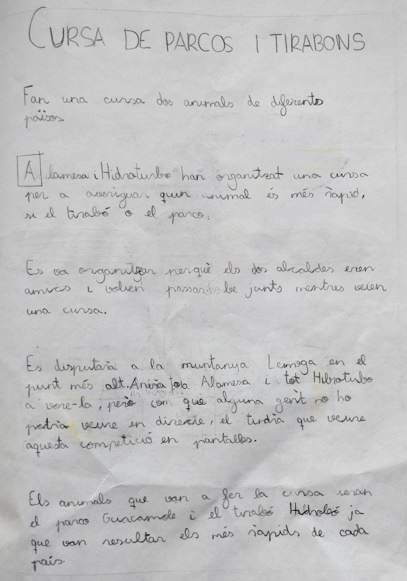 CURSA DE PARCOS I TIRABONS
Fan una cursa dos animals de diferents
països.
Alamesa i Hidroturbo han organitzat una cursa
per a averiguar quin animal és més ràpid,
si el tirabó o el parco.
Es va organitzar perquè els dos alcaldes eren
amics i volien passar-ho bé junts mentres veien
una cursa.
Es disputarà a la muntanya Lemoga en el
punt més alt. Aniria tota Alamesa i tot Hidroturbo
a vore-la, però com que alguna gent no ho
podria veure en directe, el tindria que veure
aquesta competició en pantalles.
Els animals que van a fer la cursa seran
el parco Guacamole i el tirabó ja
que van resultar els més ràpids de cada
país.